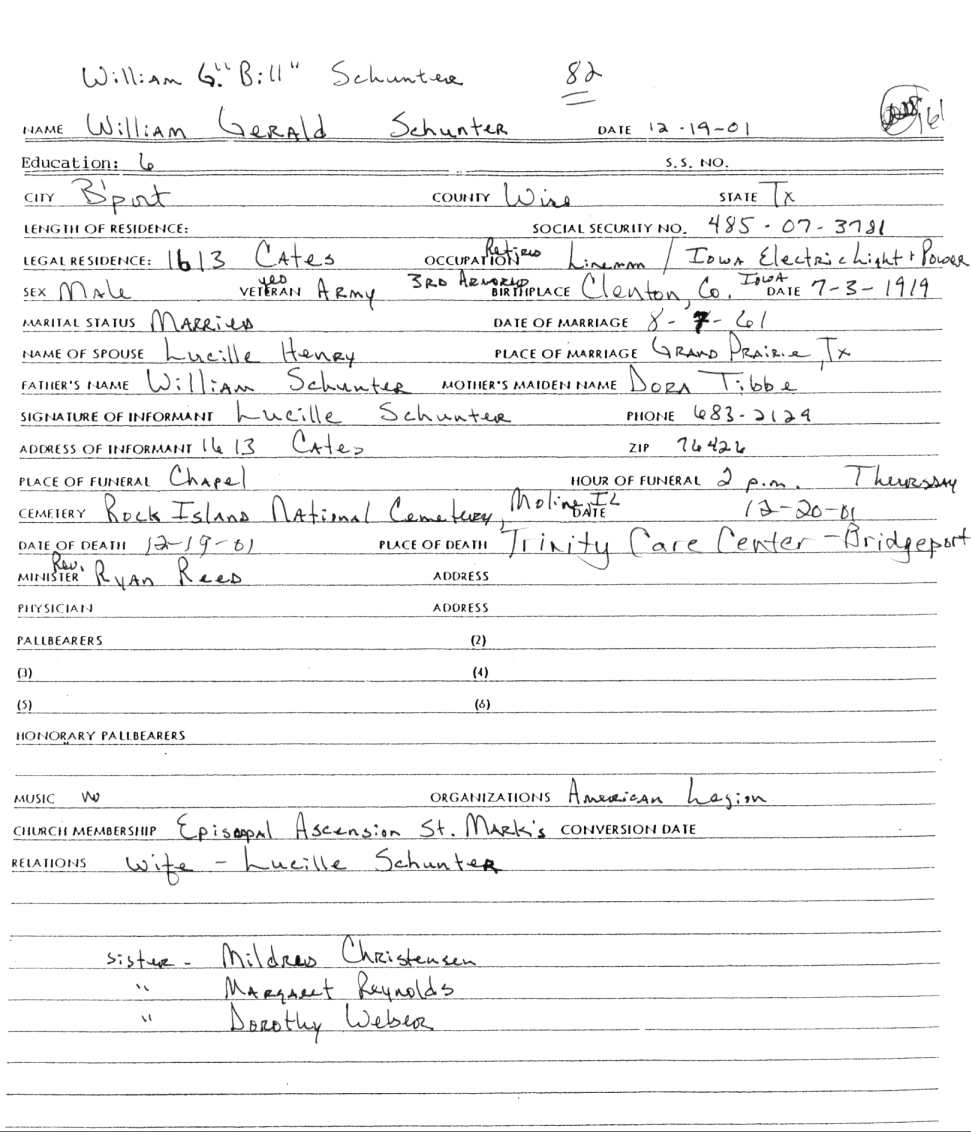 William G. "Bill" Schunter 82
NAME William Gerald Schunter DATE 12-19-01
Education: 6 S.S. NO.
CITY B'port COUNTY Wise STATE Tx
LENGTH OF RESIDENCE: SOCIAL SECURITY NO. 485-07-3781
LEGAL RESIDENCE: 1613 Cates OCCUPATION Retired Lineman / Iowa Electric Light + Power
SEX Male VETERAN yes Army 3rd Armored BIRTHPLACE Clenton, Co. Iowa DATE 7-3-1919
MARITAL STATUS Married DATE OF MARRIAGE 8-7-61
NAME OF SPOUSE Lucille Henry PLACE OF MARRIAGE Grand Prairie, Tx
FATHER'S NAME William Schunter MOTHER'S MAIDEN NAME Dora Tibbe
SIGNATURE OF INFORMANT Lucille Schunter PHONE 683-2129
ADDRESS OF INFORMANT 1613 Cates ZIP 76426
PLACE OF FUNERAL Chapel HOUR OF FUNERAL 2 p.m. Thursday
CEMETERY Rock Island National Cemetery, Moline, IL DATE 12-20-01
DATE OF DEATH 12-19-01 PLACE OF DEATH Trinity Care Center - Bridgeport
MINISTER Rev. Ryan Reed ADDRESS
PHYSICIAN ADDRESS
PALLBEARERS (2)
(3) (4)
(5) (6)
HONORARY PALLBEARERS
MUSIC ORGANIZATIONS American Legion
CHURCH MEMBERSHIP Episcopal Ascension St. Mark's CONVERSION DATE
RELATIONS Wife - Lucille Schunter
sister - Mildred Christensen
" Margaret Reynolds
" Dorothy Weber